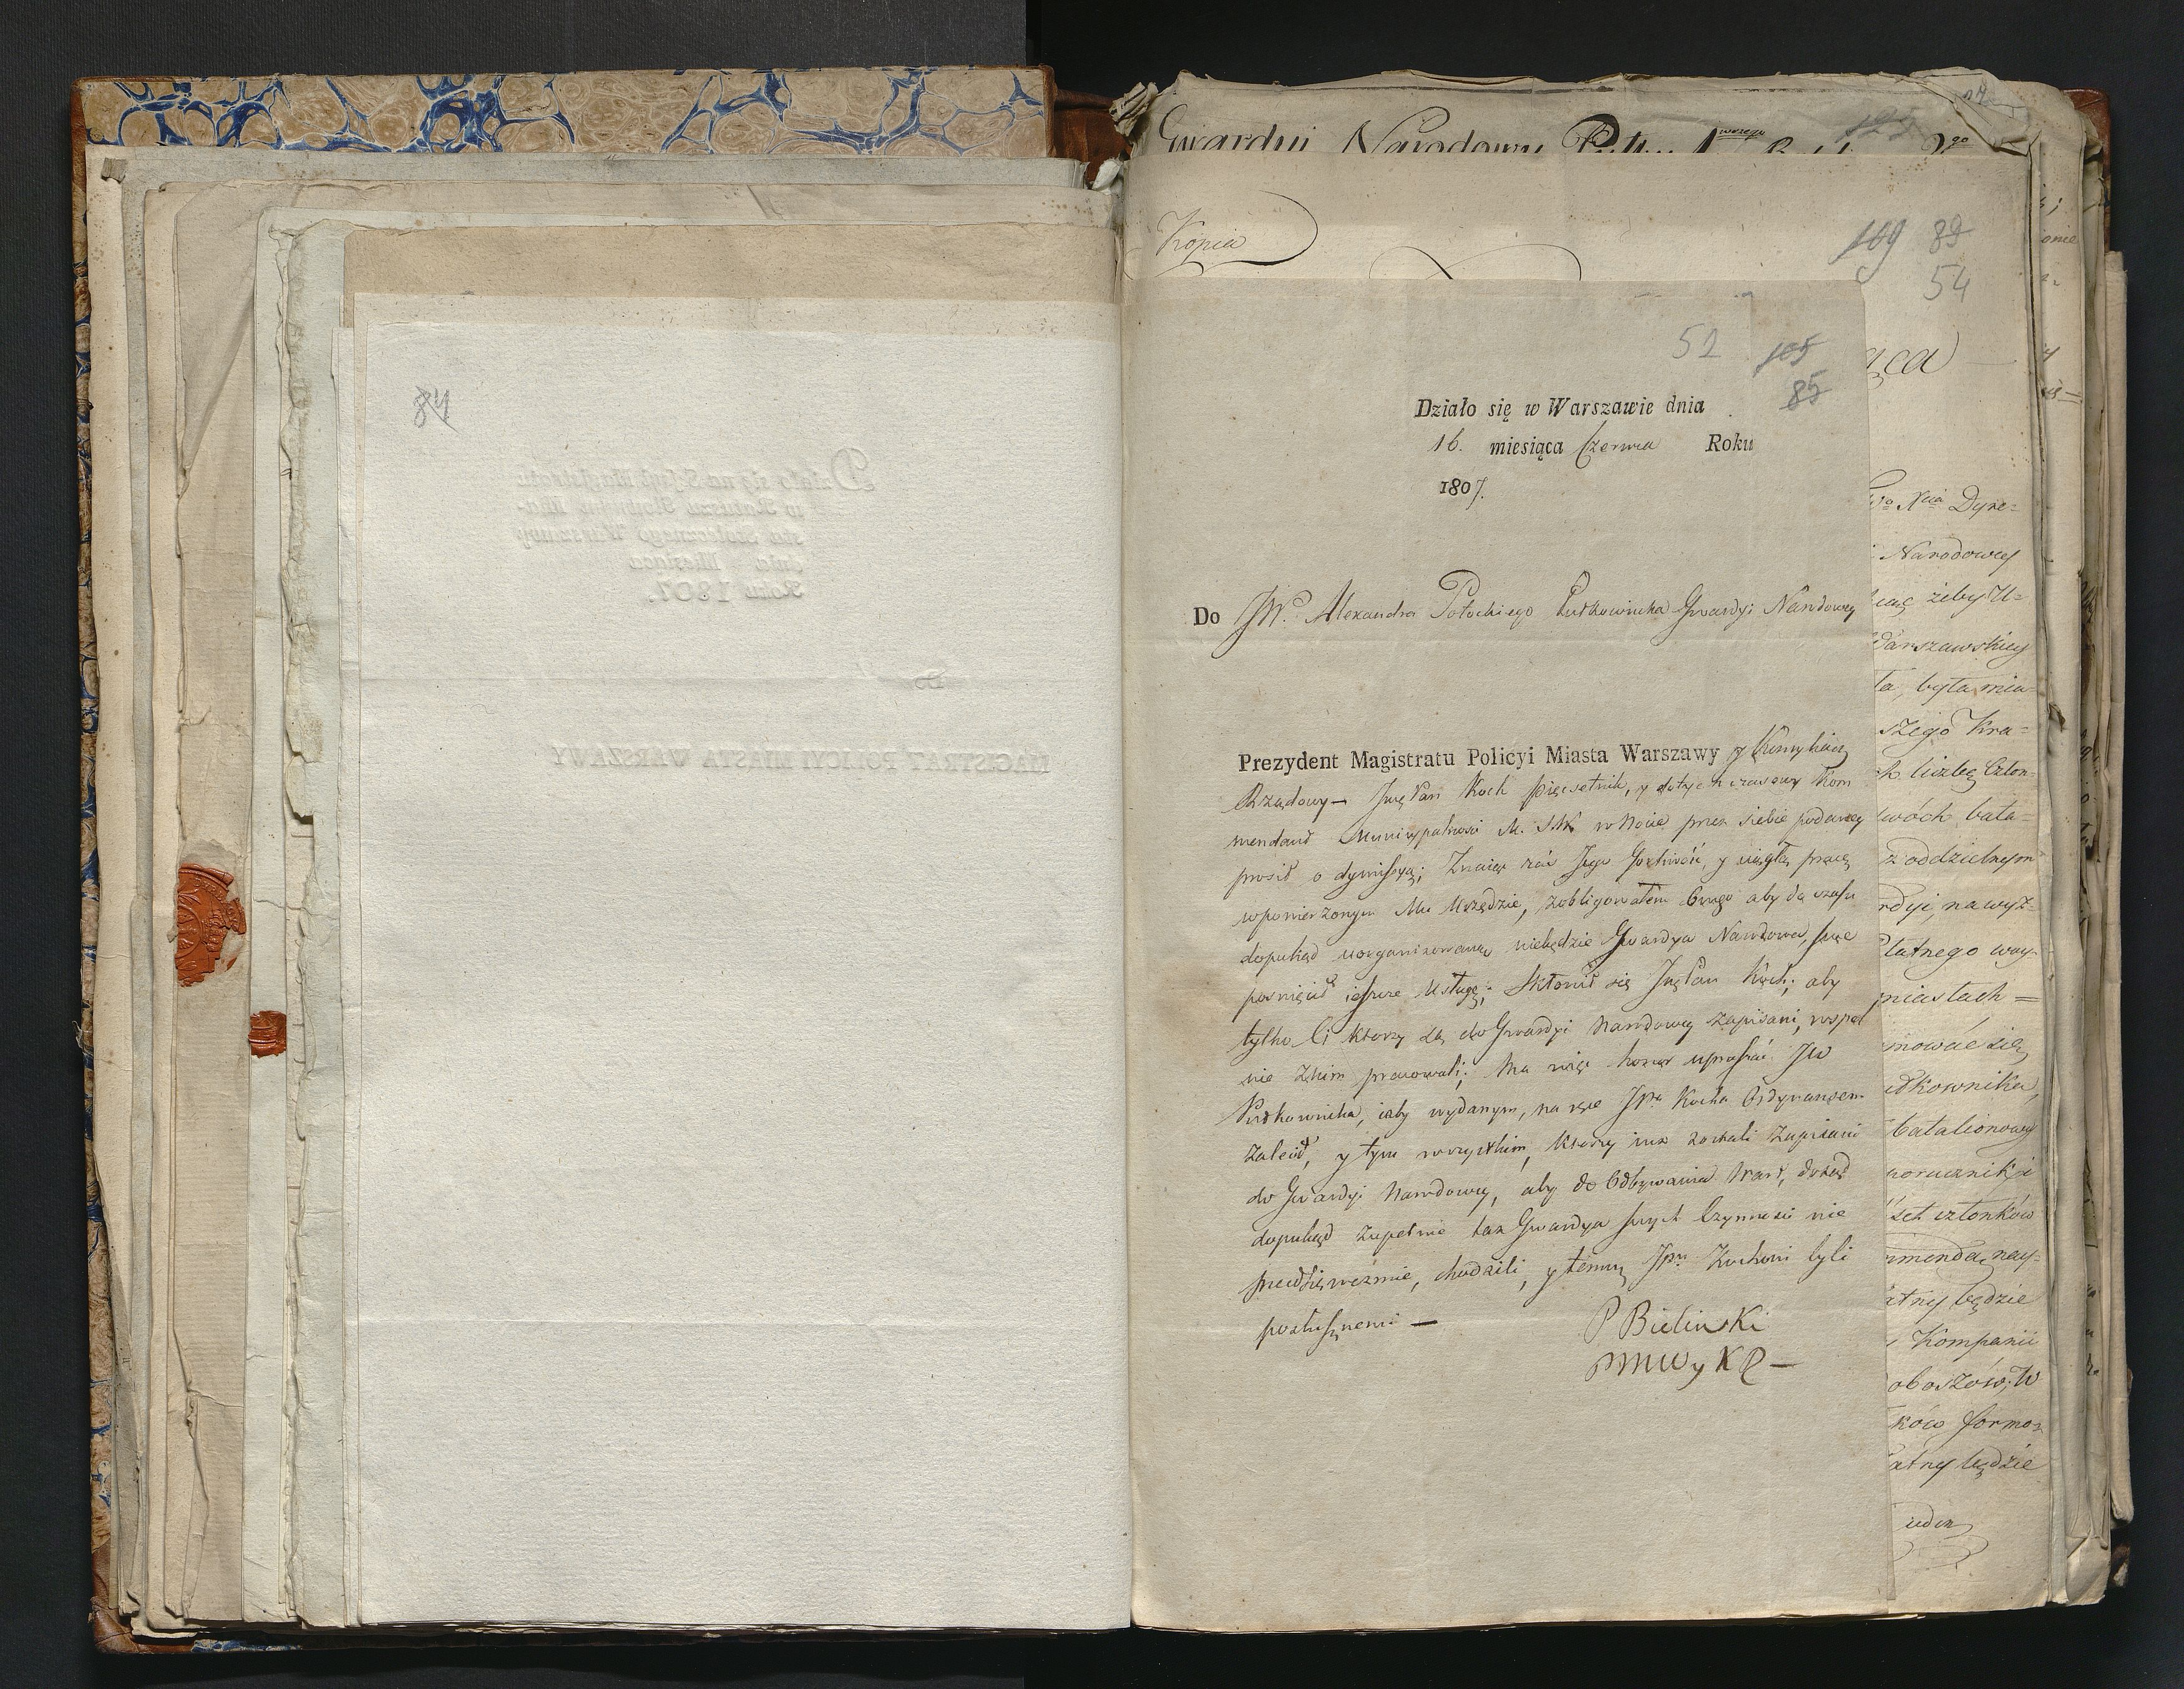 84
Działo się na Sessyi Magistratu
w Ratuszu Głównym Mia-
sta Stołecznego Warszawy
dnia Miesiąca
Roku 1807.
Do
MAGISTRAT POLICYI MIASTA WARSZAWY
Gwardyi Narodowy Pułku 1wszego 2go
125
Kopia
109 89
54
52 105
85
Działo się w Warszawie dnia
16. miesiąca Czerwca Roku
1807.
Do JW. Alexandra Potockiego Pułkownika Gwardyi Narodowey
Prezydent Magistratu Policyi Miasta Warszawy y
Rządowy — Jmć Pan Koch pięćsetnik, y dotychczasowy Kom
mendant Municypalnosci w Nocie przez siebie podaney
prosił o dymissyą; Znaiąc zaś Jego Gorliwość, y ciągłą pracę
w powierzonym Mu Urzędzie, zobligowałem Onego aby do czasu
dopukąd uorganizowaną niebędzie Gwardya Narodowa, swe
poswięcił ieszcze usługę; Skłonił się Jmć Pan Koch, aby
tylko Ci ktorzy są do Gwardyi Narodowey zapisani, wspol
nie z nim pracowali; Ma więc honor upraszać JW
Pułkownika, iżby wydanym, na ręce JPa Kocha Ordynansem
zalecił, y tym wszystkim, ktorzy iuż zostali zapisani
do Gwardyi Narodowey, aby do Odbywania Wart, dokąd
dopukąd zupełnie taż Gwardya swych Czynnosci nie
przedsięweźmie, chodzili, y temuż JPu Kochowi byli
posłusznemi —
P Bielinski
PMWyKR —
ąca
Xcia Dyre=
Narodowey
żeby U=
Warszawskiey
ta, była mia=
szego Kra=
liczbę Człon=
dwóch bata=
z oddzielnym
rdyi, na wyż=
Płatnego
miastach =
mować się
ułkownika,
batalionowy
poruczniki
set członków
mmendą nay=
atney będzie
Kompanii
oboszów; W
ków formo=
atney będzie